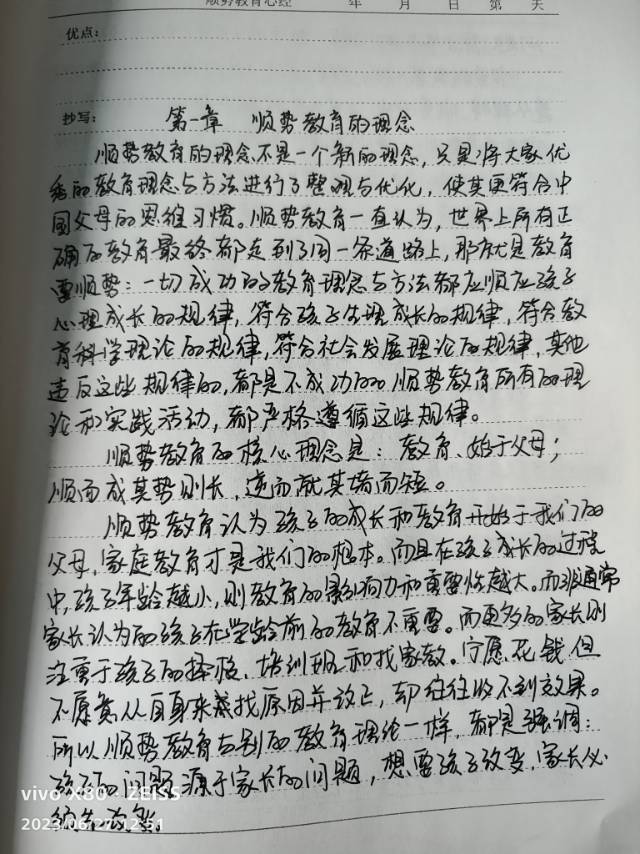 顺势教育心经 年 月 日 第 天
优点:
抄写: 第一章 顺势教育的理念
顺势教育的理念不是一个新的理念,只是将大家优
秀的教育理念与方法进行了整理与优化,使其更符合中
国父母的思维习惯。顺势教育一直认为,世界上所有正
确的教育最终都走到了同一条道路上,那就是教育
要顺势:一切成功的教育理念与方法都应顺应孩子
心理成长的规律,符合孩子生理成长的规律,符合教
育科学理论的规律,符合社会发展理论的规律,其他
违反这些规律的,都是不成功的。顺势教育所有的理
论和实践活动,都严格遵循这些规律。
顺势教育的核心理念是:教育、始于父母;
顺而成其势则长,逆而就其墙而短。
顺势教育认为孩子的成长和教育开始于我们的
父母,家庭教育才是我们的根本。而且在孩子成长的过程
中,孩子年龄越小,则教育的影响力和重要性越大。而非通常
家长认为的孩子在学龄前的教育不重要。而更多的家长则
注重于孩子的择校、培训班和找家教。宁愿花钱但
不愿意从自身来着找原因并改正,却往往收不到效果。
所以顺势教育与别的教育理论一样,都是强调:
孩子的问题源于家长的问题,想要孩子改变,家长必
须先改变。
vivo X80 · ZEISS
2023/06/27 12:51